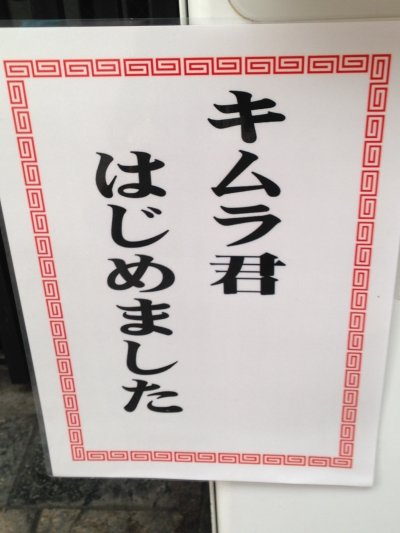 キムラ君
はじめました